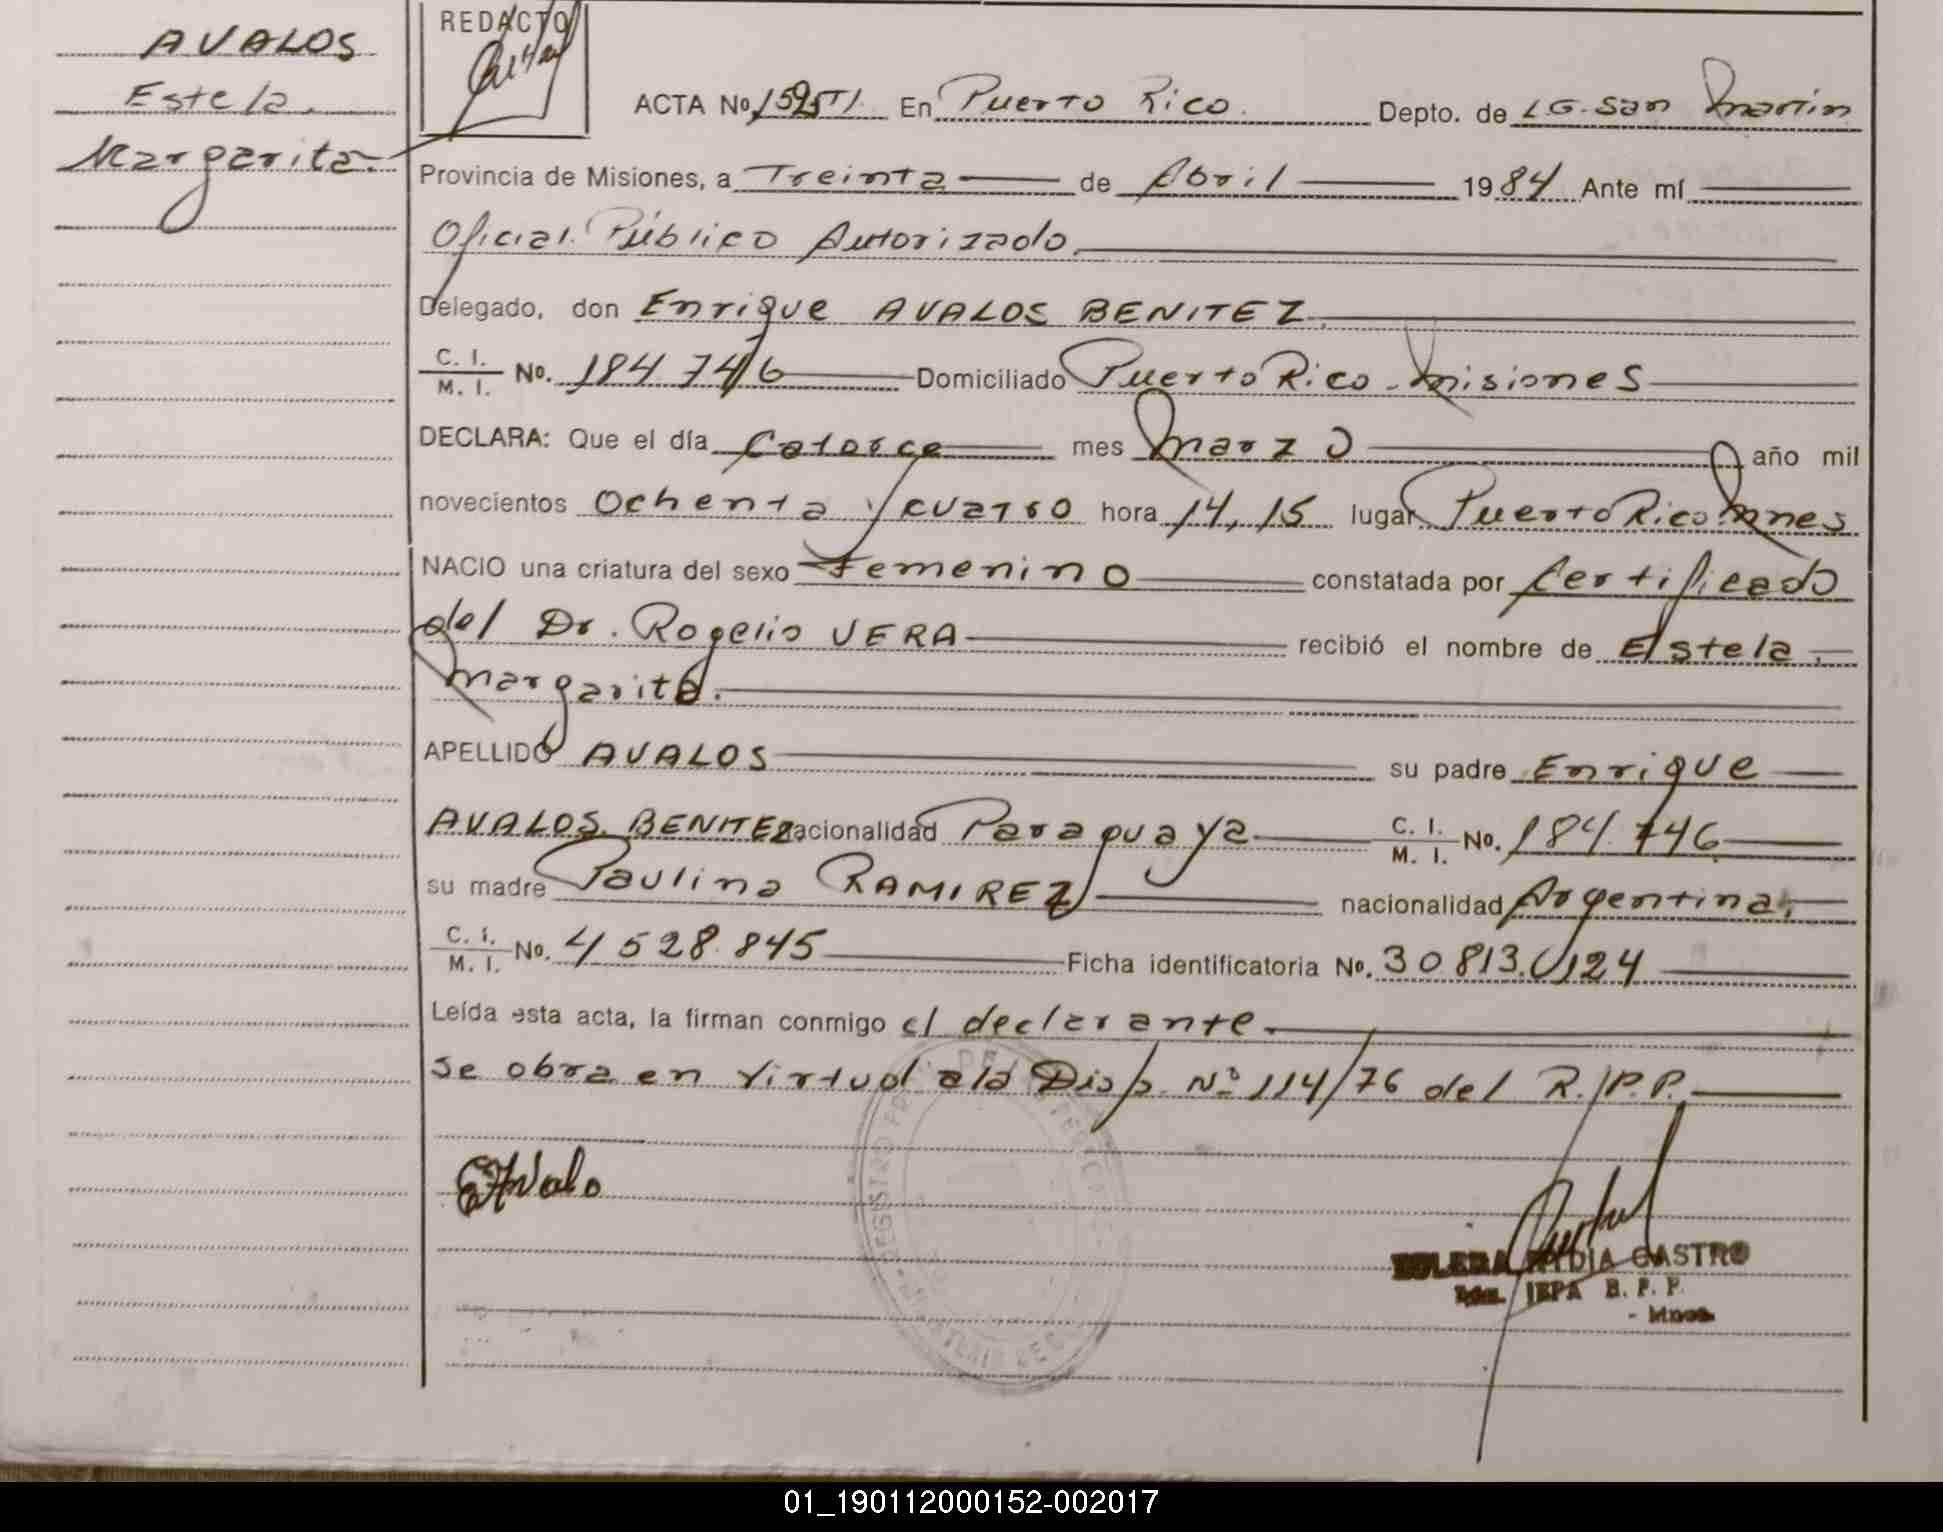 AVALOS
Estela.
Margarita.
REDACTO
ACTA No. En Puerto Rico. Depto. de LG. San Martin
Provincia de Misiones, a Treinta de Abril 1984 Ante mí
Oficial Público Autorizado.
Delegado, don Enrique AVALOS BENITEZ.
C. I. / M. I. No. 184 746 Domiciliado Puerto Rico - Misiones
DECLARA: Que el día Catorce mes Marzo año mil
novecientos Ochenta y cuatro hora 14,15 lugar Puerto Rico. Mnes
NACIO una criatura del sexo Femenino constatada por Certificado
del Dr. Rogelio VERA recibió el nombre de Estela
Margarita.
APELLIDO AVALOS su padre Enrique
AVALOS BENITEZ nacionalidad Paraguaya C. I. / M. I. No. 184.746
su madre Paulina RAMIREZ nacionalidad Argentina.
C. I. / M. I. No. 4 528.845 Ficha identificatoria No. 30.813.U124
Leída esta acta, la firman conmigo el declarante.
se obra en virtud a la Disp. Nº 114/76 del R.P.P.
EAvalo
CASTRO
01_190112000152-002017